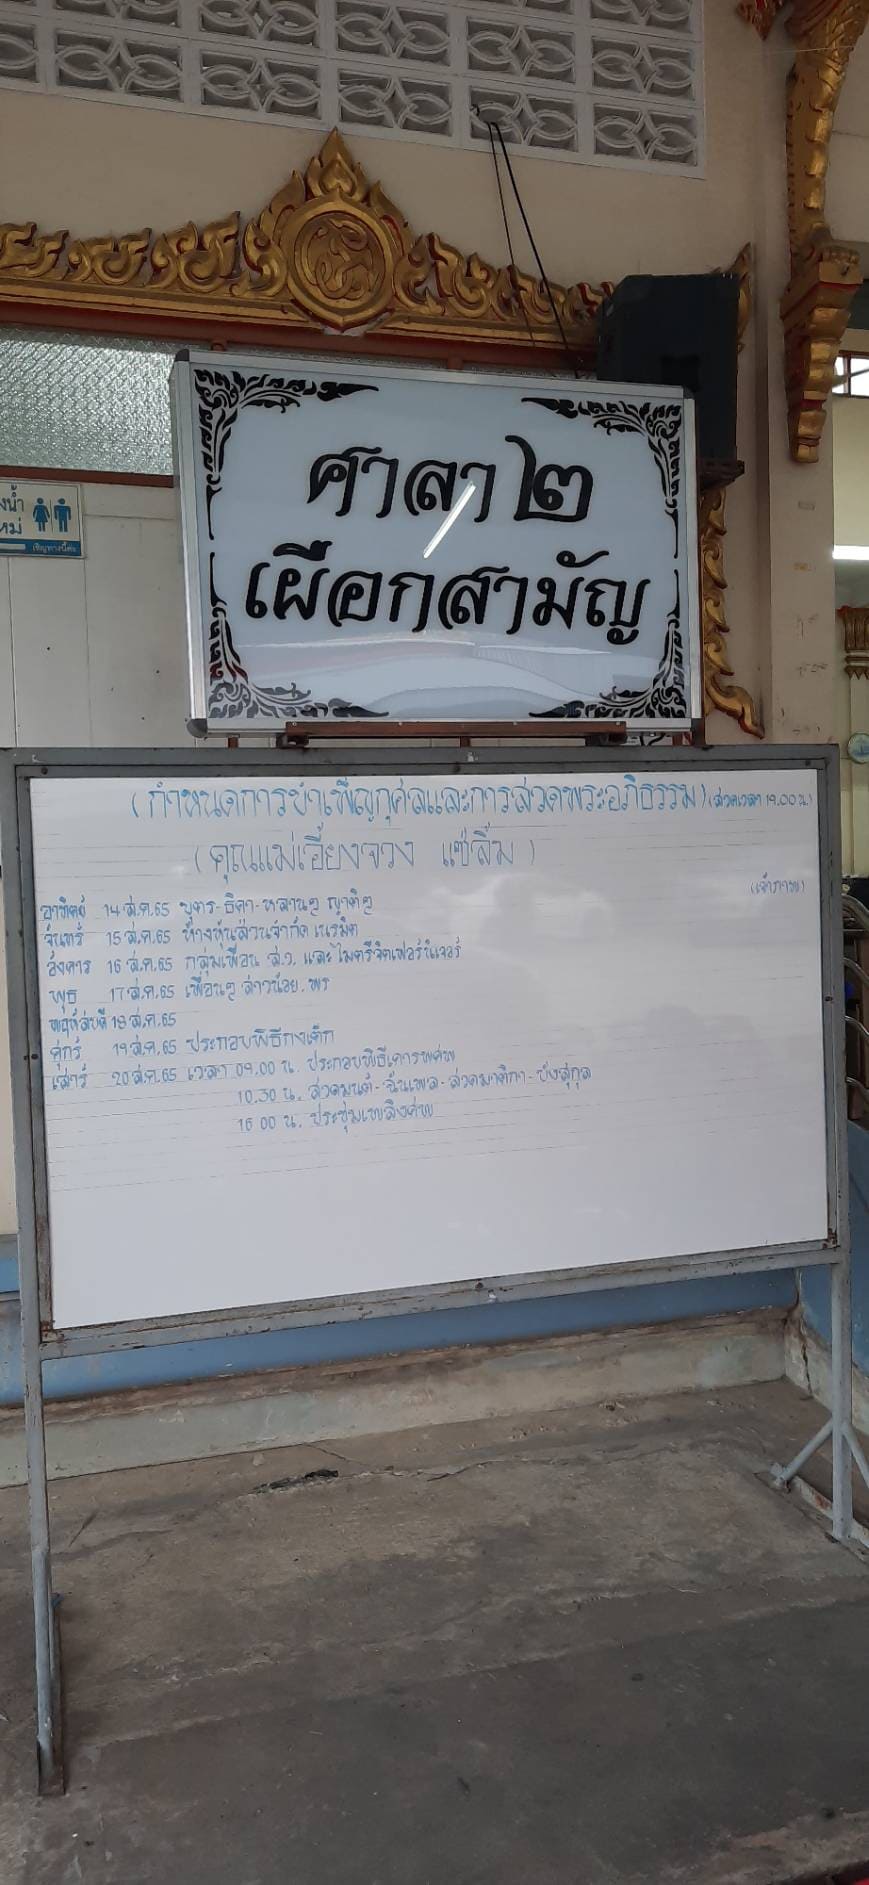 ศาลา ๒
เผือกสามัญ
งน้ำ
หม่
เชิญทางนี้ค่ะ
(กำหนดการบำเพ็ญกุศลและการสวดพระอภิธรรม) (สวดเวลา 19.00 น.)
(คุณแม่เอี้ยงจวง แซ่ลิ้ม)
(เจ้าภาพ)
อาทิตย์ 14 ส.ค.65 บุตร-ธิดา-หลานๆ ญาติๆ
จันทร์ 15 ส.ค.65 ห้างหุ้นส่วนจำกัด เนรมิต
อังคาร 16 ส.ค.65 กลุ่มเพื่อน ส.ว. และไมตรีจิตเฟอร์นิเจอร์
พุธ 17 ส.ค.65 เพื่อนๆ สาวน้อย.พร
พฤหัสบดี 18 ส.ค.65
ศุกร์ 19 ส.ค.65 ประกอบพิธีกงเต็ก
เสาร์ 20 ส.ค.65 เวลา 09.00 น. ประกอบพิธีเคารพศพ
10.30 น. สวดมนต์-ฉันเพล-สวดมาติกา-บังสุกุล
16 00 น. ประชุมเพลิงศพ